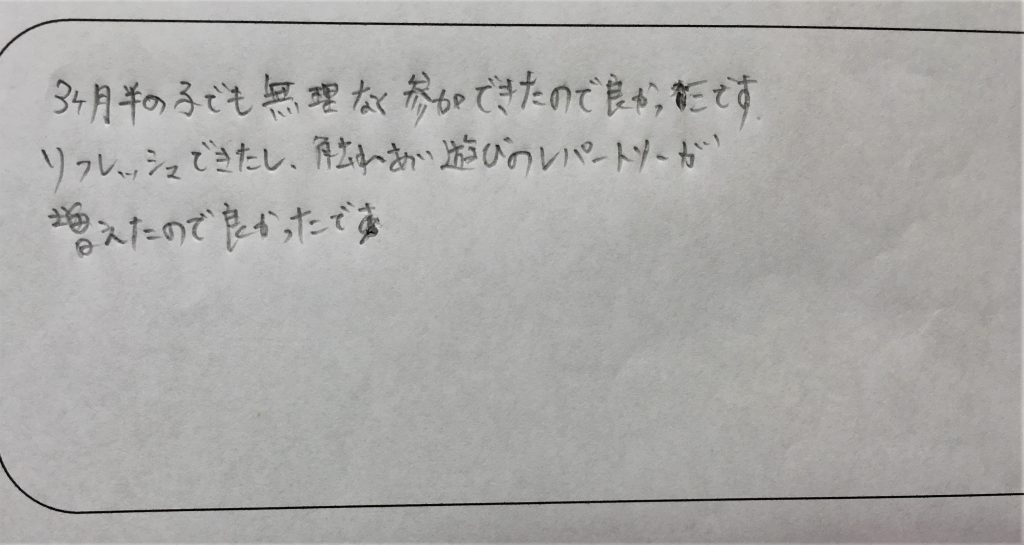 3ヶ月半の子でも無理なく参加できたので良かったです。
リフレッシュできたし、触れあい遊びのレパートリーが
増えたので良かったです